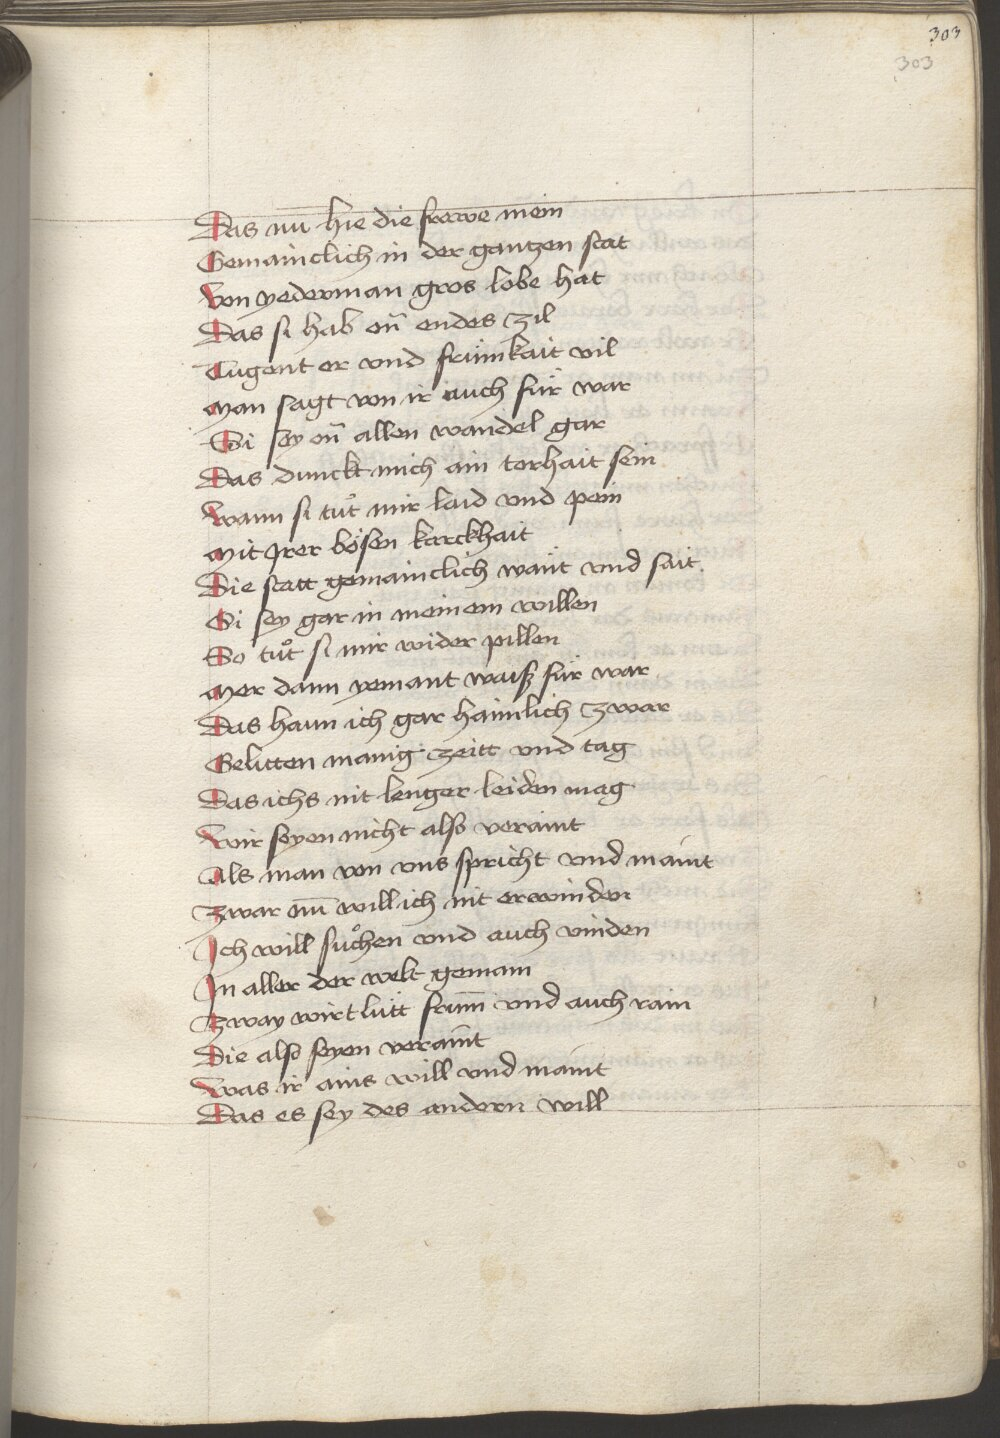 303
303
Das nu hie die frowe mein
Gemainclich in der gantzen stat
Von yederman gros lobe hat
Das si hab on̄ endes zil
Tugent er vnd frümkait vil
Man sagt von ir auch für war
Si sey on̄ allen wandel gar
Das dunckt mich ain torhait sein
Wann si tuͦt mir laid vnd pein
Mit Irer bösen karckhait
Die statt gemainclich wänt vnd sait
Si sey gar in meinem willen
So tuͦt si mir wider pillen
Mer dann yemant waiß für war
Das hann ich gar haimlich zwar
Gelitten manig zeitt vnd tag
Das ichs nit lenger leiden mag
Wir seyen nicht also veraint
Als man von vns spricht vnd maint
Zwar nū will ich nit erwinden
Ich will suͦchen vnd auch vinden
In aller der welt gemain
Zway wirtlütt frum̄ vnd auch rain
Die also seyen veraint
Was ir ains will vnd maint
Das es sey des andern will